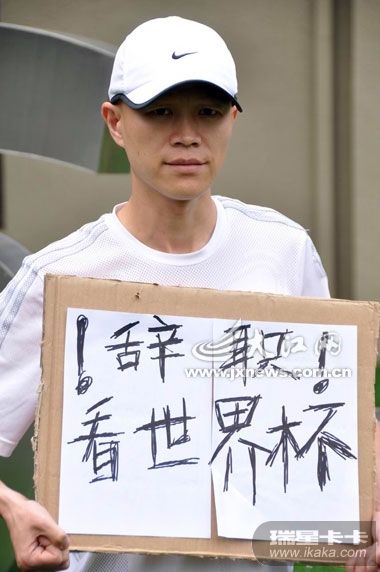 ！辞职！
看世界杯
大江网
www.jxnews.com.cn
瑞星卡卡
www.ikaka.com